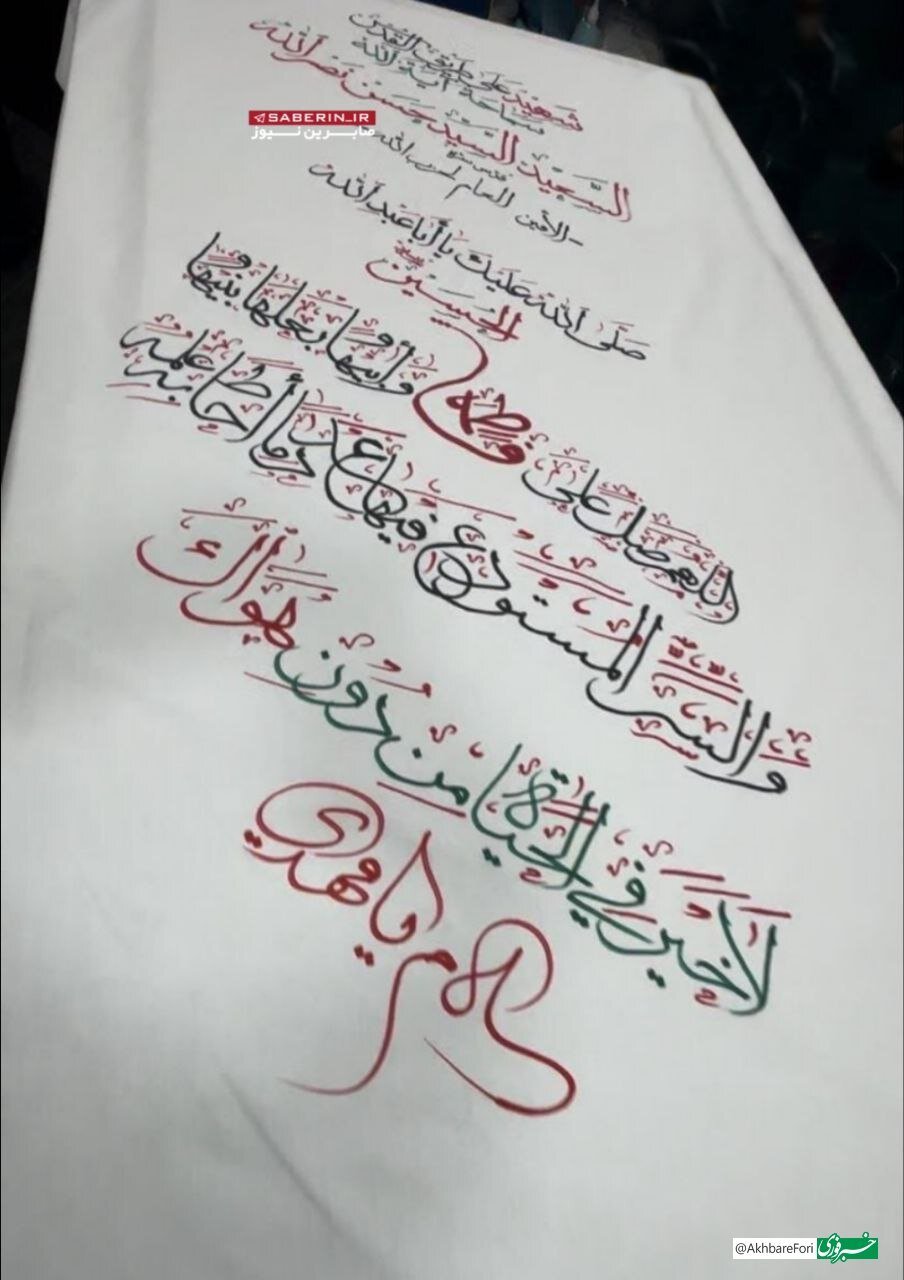 شهيد على طريق القدس
سماحة آية الله
السعيد السيد حسن نصر الله
قدس سره
-الأمين العام لحزب الله
SABERIN_IR
صابرین نیوز
صَلَّى اللهُ عَلَيْكَ يا أَبا عَبْدِ اللهِ
الحُسَين
اللّهُمَّ صَلِّ عَلىٰ فاطِمَةَ وَأَبيها وَبَعْلِها وَبَنيها
وَالسِّرِّ المُسْتَوْدَعِ فيها عَدَدَ ما أَحاطَ بِهِ عِلْمُكَ
لا خَيْرَ فِي الحَياةِ مِنْ دُونِ هَواكَ
سلام يا مهدي
@AkhbareFori
خبرفوری